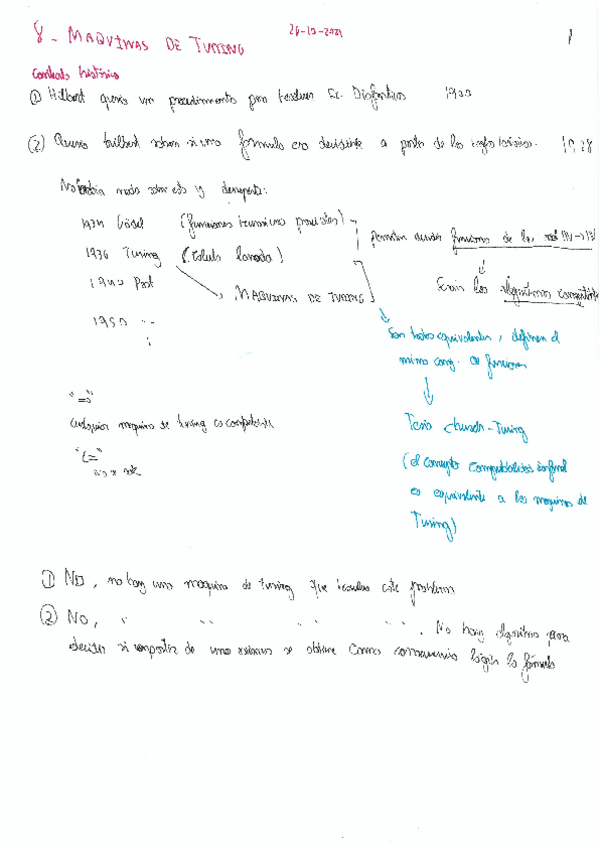 8 - MAQUINAS DE TURING 26-10-2021 1
Contexto histórico
① Hilbert quería un procedimiento para resolver Ec. Diofánticas 1900
② Quería Hilbert saber si una fórmula era decidible a partir de los 1928
No había nada sobre esto y
1934 Gödel (funciones recursivas
1936 Turing (Cálculo lambda)
1940 Post MAQUINAS DE TURING
1950 ...
funciones de los
los algoritmos
Son todos equivalentes, definen el
mismo conj. de funciones
Tesis Church-Turing
(el concepto informal
es equivalente a las maquinas de
Turing)
"⇒"
cualquier maquina de turing es
"⇐"
① NO, no hay una maquina de turing que resuelva este problema
② NO, " " " " ". No hay algoritmo para
decidir si a partir de unos se obtiene como consecuencia lógica la fórmula